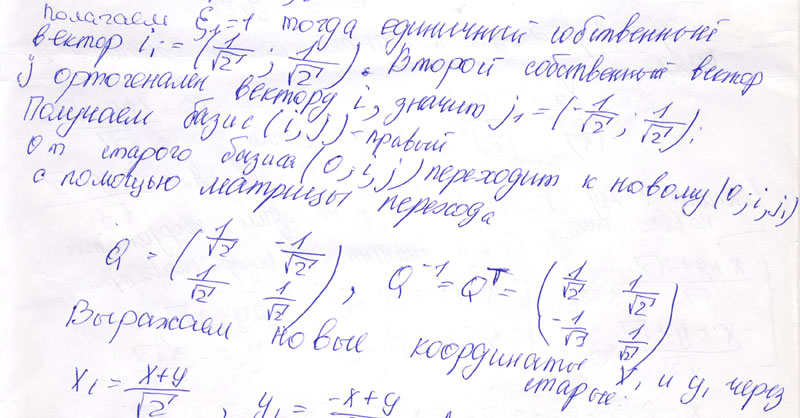 полагаем ξ₁=1 тогда единичный собственный
вектор i₁ = (1/√2 ; 1/√2). Второй собственный вектор
j ортогенален вектору i, значит j₁ = (-1/√2 ; 1/√2);
Получаем базис (i, j) - правый
От старого базиса (0; i, j) переходит к новому (0; i, j₁)
с помощью матрицы перехода
Q = (1/√2 -1/√2 1/√2 1/√2), Q⁻¹ = Qᵀ = (1/√2 1/√2 -1/√2 1/√2)
Выражаем новые координаты x₁ и y₁ через
старые:
x₁ = x+y/√2, y₁ = -x+y